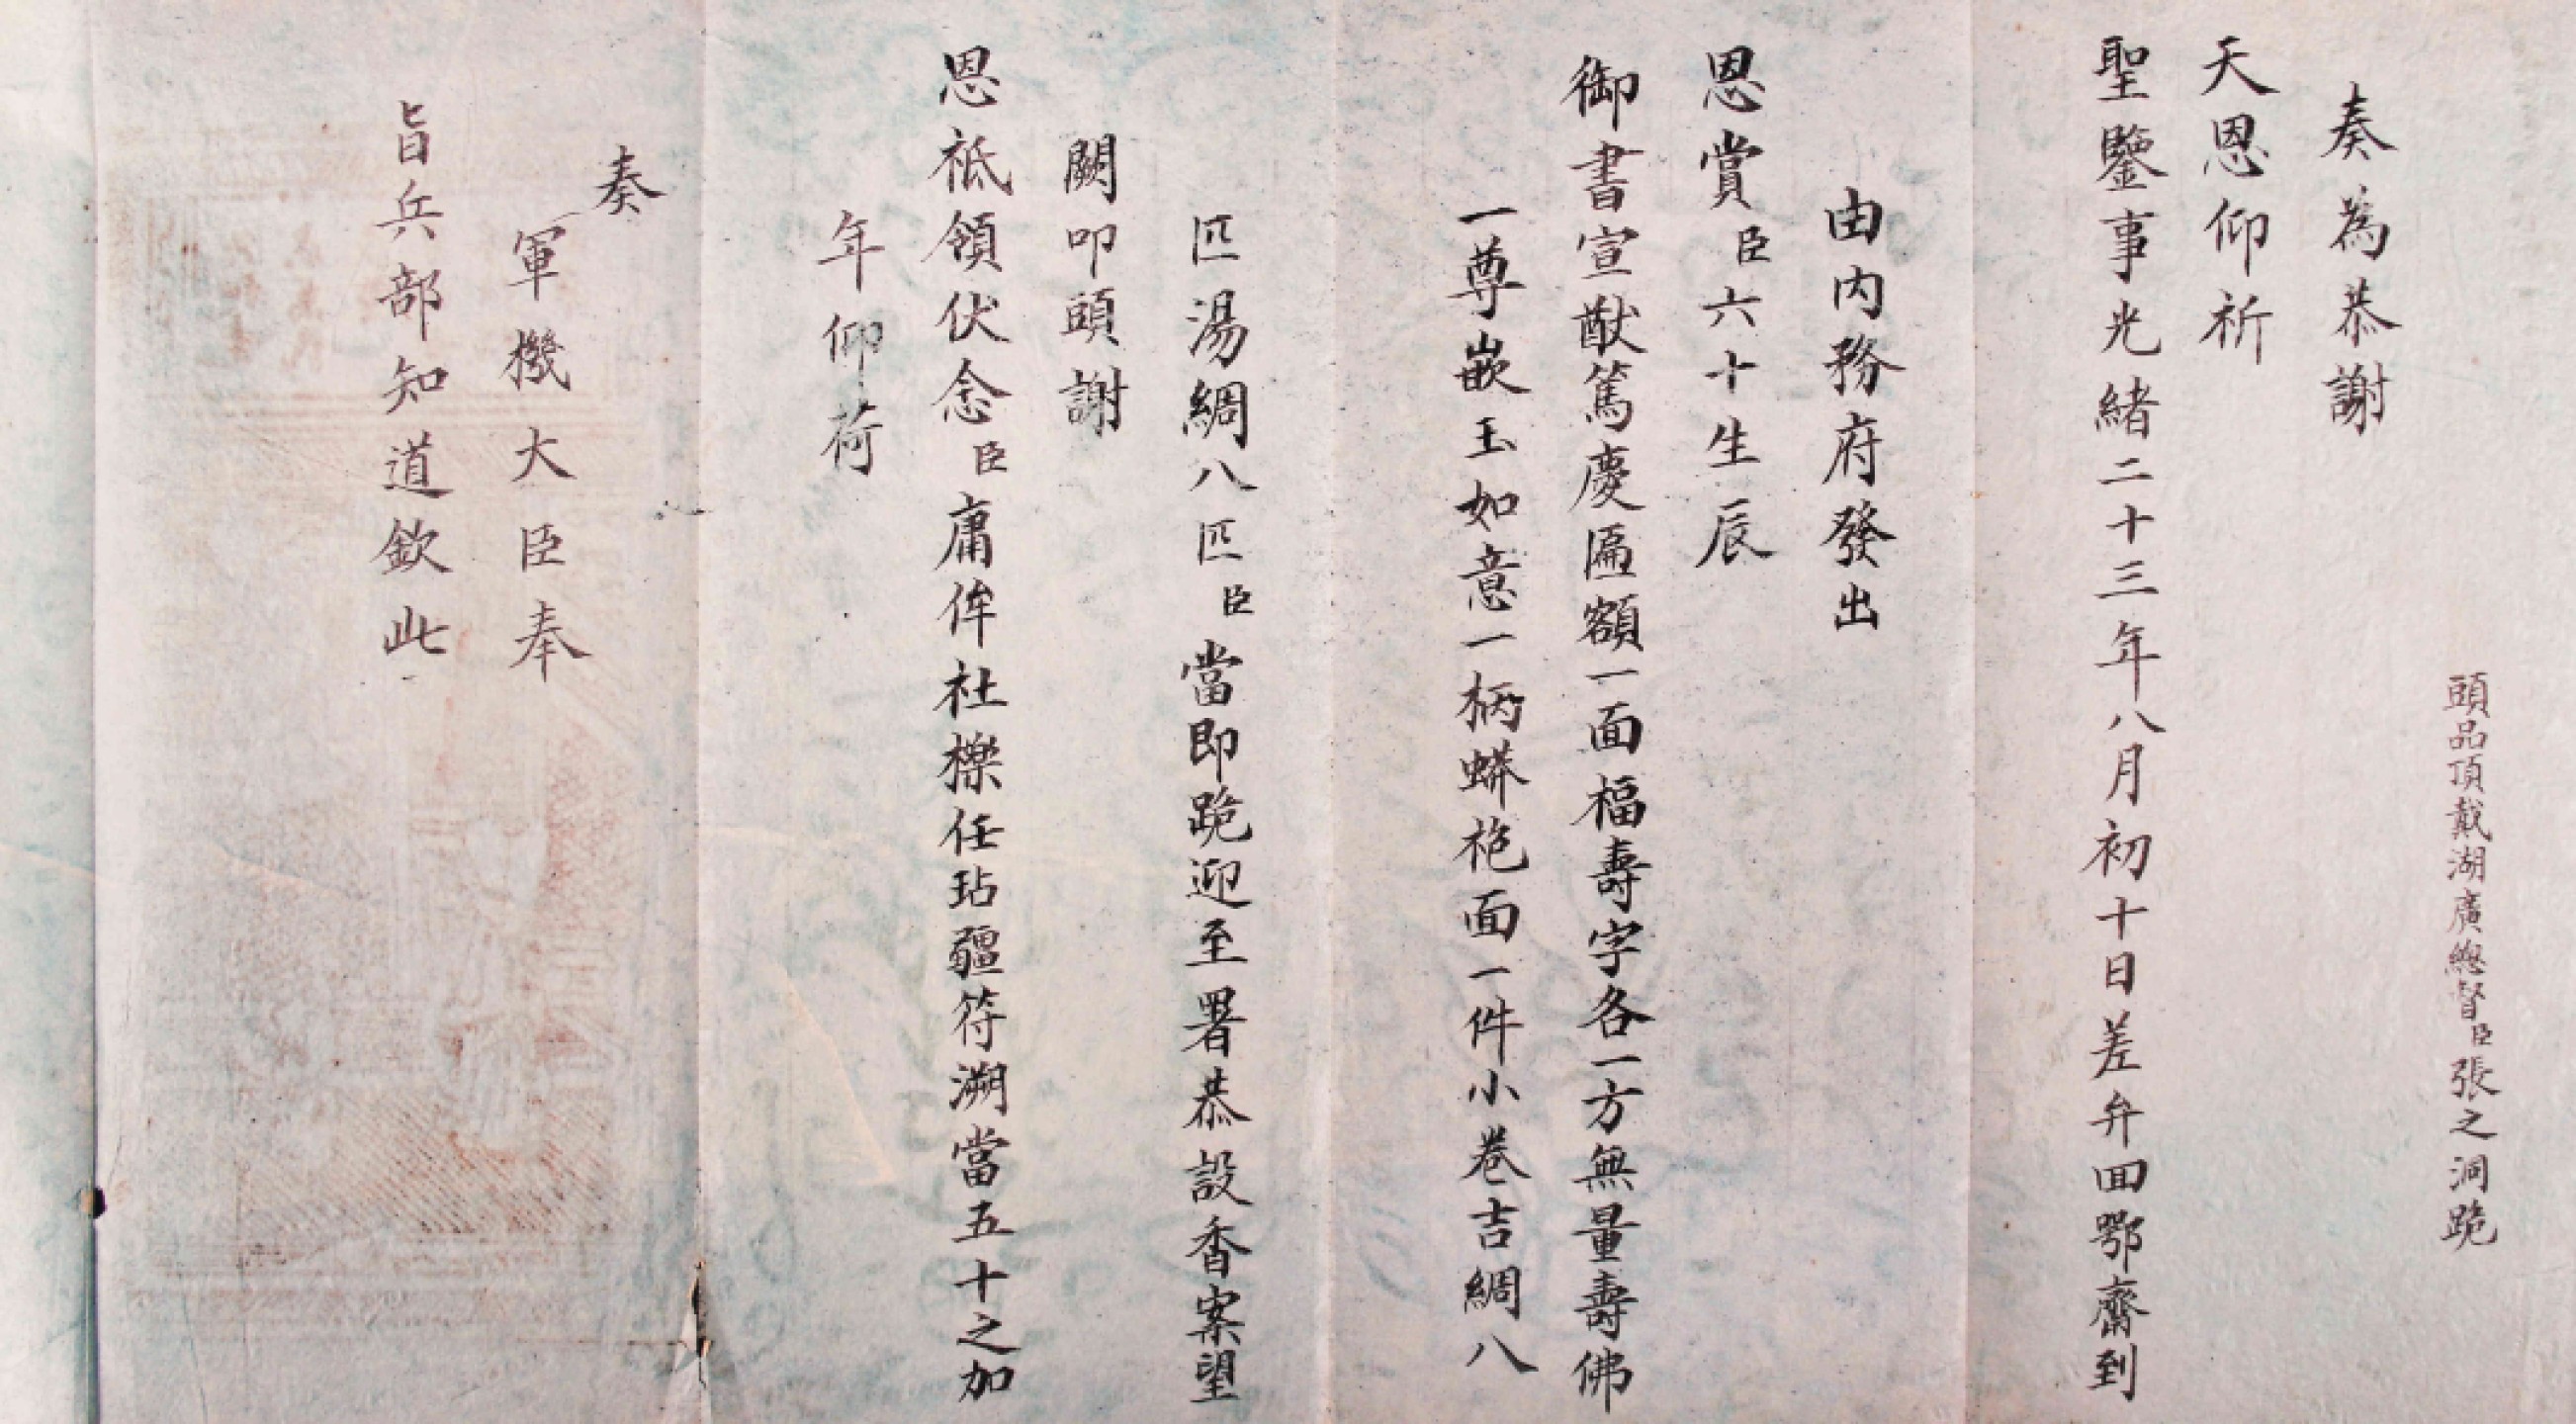 頭品頂戴湖廣總督臣張之洞跪
奏為恭謝
天恩仰祈
聖鑒事光緒二十三年八月初十日差弁回鄂齎到
由内務府發出
恩賞臣六十生辰
御書宣猷篤慶匾額一面福壽字各一方無量壽佛
一尊嵌玉如意一柄蟒袍面一件小卷吉綢八
匹湯綢八匹臣當即跪迎至署恭設香案望
闕叩頭謝
恩祗領伏念臣庸侔社櫟任玷疆符溯當五十之加
年仰荷
奏
軍機大臣奉
旨兵部知道欽此